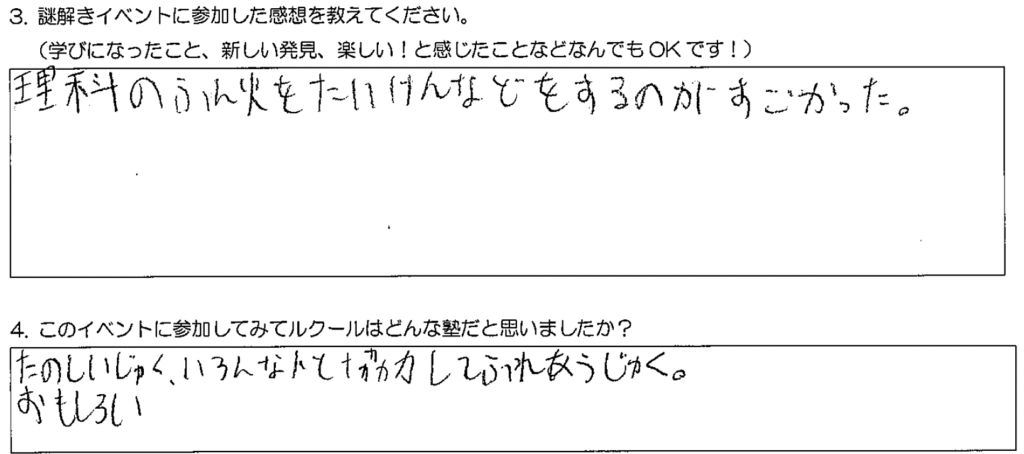 3. 謎解きイベントに参加した感想を教えてください。
（学びになったこと、新しい発見、楽しい！と感じたことなどなんでもOKです！）
理科のふん火をたいけんなどをするのがすごかった。
4. このイベントに参加してみてルクールはどんな塾だと思いましたか？
たのしいじゅく、いろんな人と力してふれあうじゅく。
おもしろい